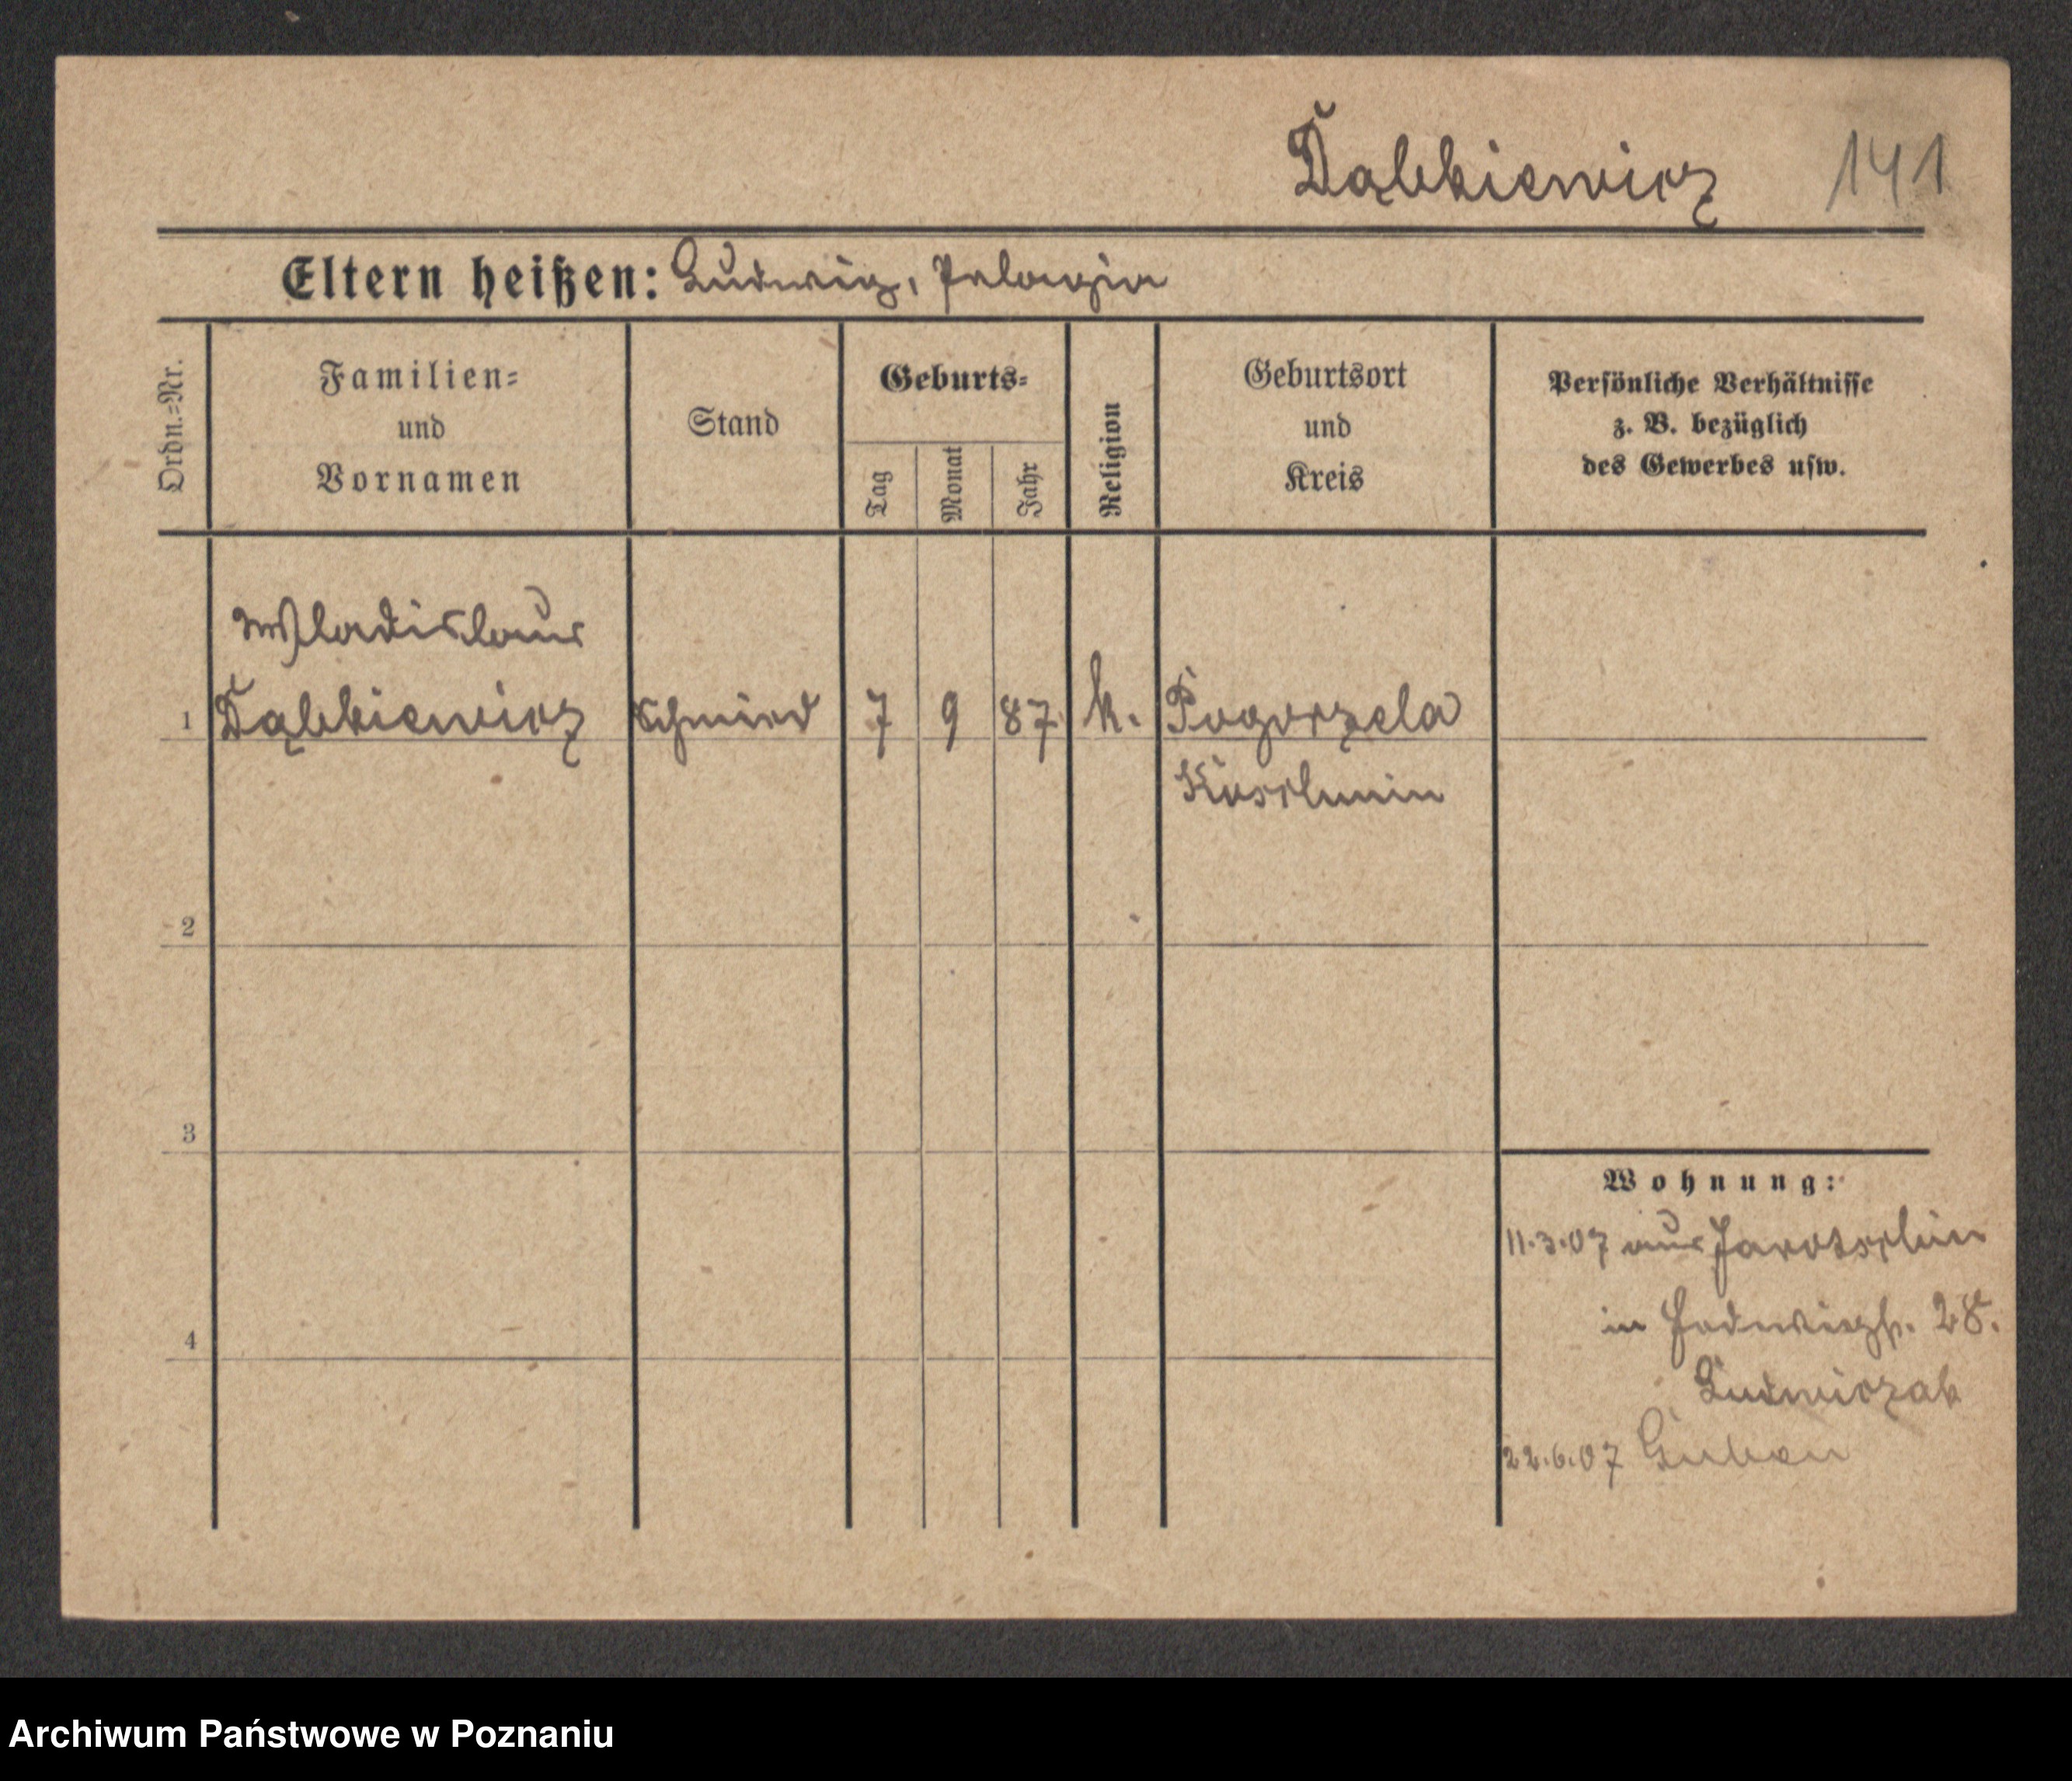 Dąbkiewicz 141
Eltern heißen: Ludwig, Pelagia
Ordn.=Nr.
Familien=
und
Vornamen
Stand
Geburts=
Tag
Monat
Jahr
Religion
Geburtsort
und
Kreis
Persönliche Verhältnisse
z. B. bezüglich
des Gewerbes usw.
Wladislaus
1 Dąbkiewicz Schmied 7 9 87 k. Pogorzela
Koschmin
2
3
4
Wohnung:
11.3.07 aus Jarotschin
in Hedwigstr. 28.
Ludwiczak
22.6.07 Guben
Archiwum Państwowe w Poznaniu